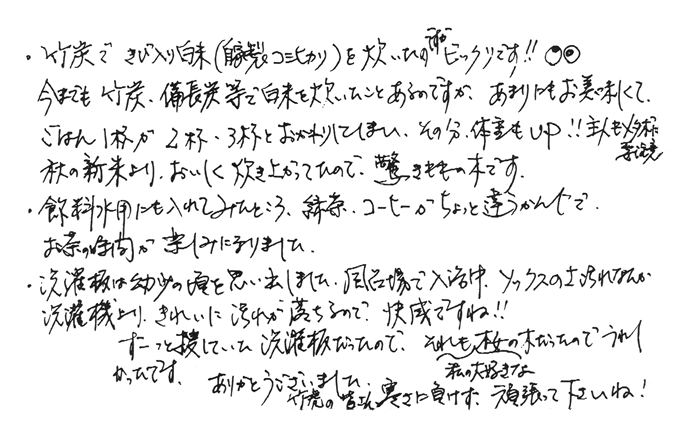 ・竹炭で きび入り白米(自家製コシヒカリ)を炊いたのですがビックリです!!
今までも 竹炭、備長炭等で白米を炊いたことあるのですが、あまりにもお美味しくて、
ごはん1杯が 2杯・3杯とおかわりしてしまい、その分、体重もUP!!主人も
秋の新米より、おいしく炊き上がってたので、驚きももの木です。
・飲料水用にも入れてみたところ、緑茶、コーヒーがちょっと違うかんじで、
お茶の時間が 楽しみになりました。
・洗濯板は幼少の頃を思い出しました。風呂場で入浴中、ソックスの土汚れなんか
洗濯機より、きれいに汚れが落ちるので、快感ですね!!
ずーっと捜していた洗濯板だったので、それも桜の木だったのでうれし
私の大好きな
かったです。 ありがとうございました。
竹虎の皆さん 寒さに負けず、頑張って下さいね!